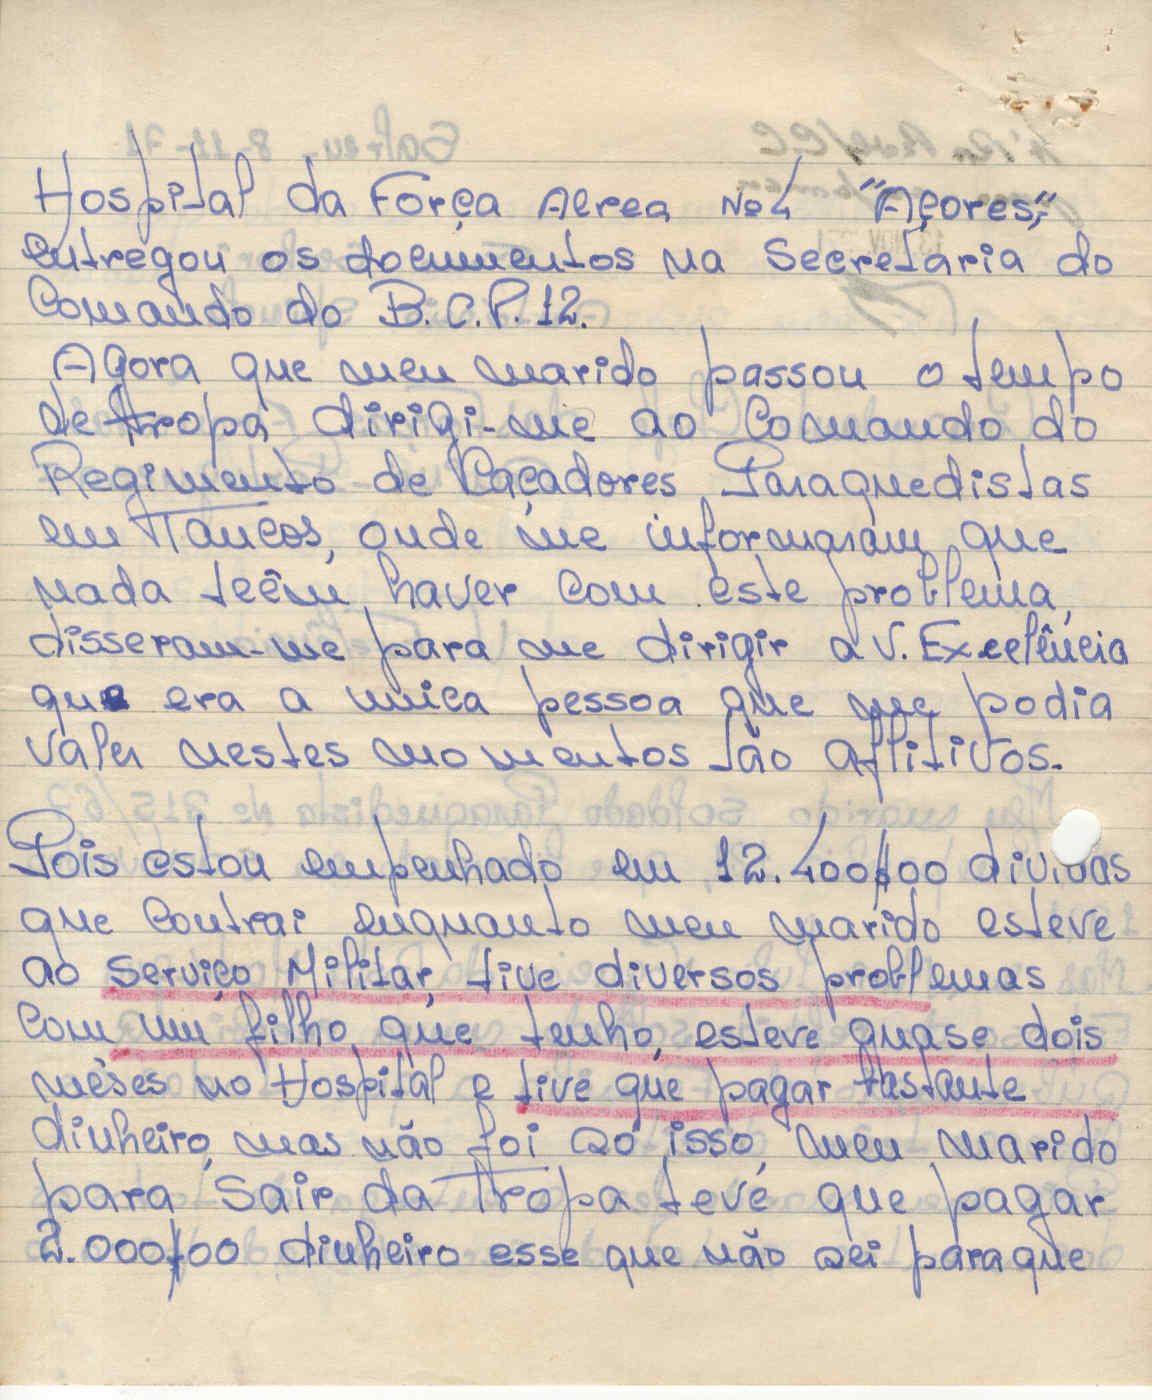 Hospital da Força Aerea Nº 4 "Açores",
entregou os documentos na Secretaria do
Comando do B.C.P. 12.
Agora que meu marido passou o tempo
de tropa dirigi-me ao Comando do
Regimento de Caçadores Paraquedistas
em Tancos, onde me informaram que
nada teêm haver com este problema,
disseram-me para me dirigir a V. Excelência
que era a unica pessoa que me podia
valer nestes momentos tão aflitivos.
Pois estou empenhado em 12.400$00 dividas
que contrai enquanto meu marido esteve
ao Serviço Militar, tive diversos problemas
com um filho que tenho, esteve quase dois
mêses no Hospital e tive que pagar bastante
dinheiro, mas não foi só isso, meu marido
para sair da Tropa teve que pagar
2.000$00 dinheiro esse que não sei para que